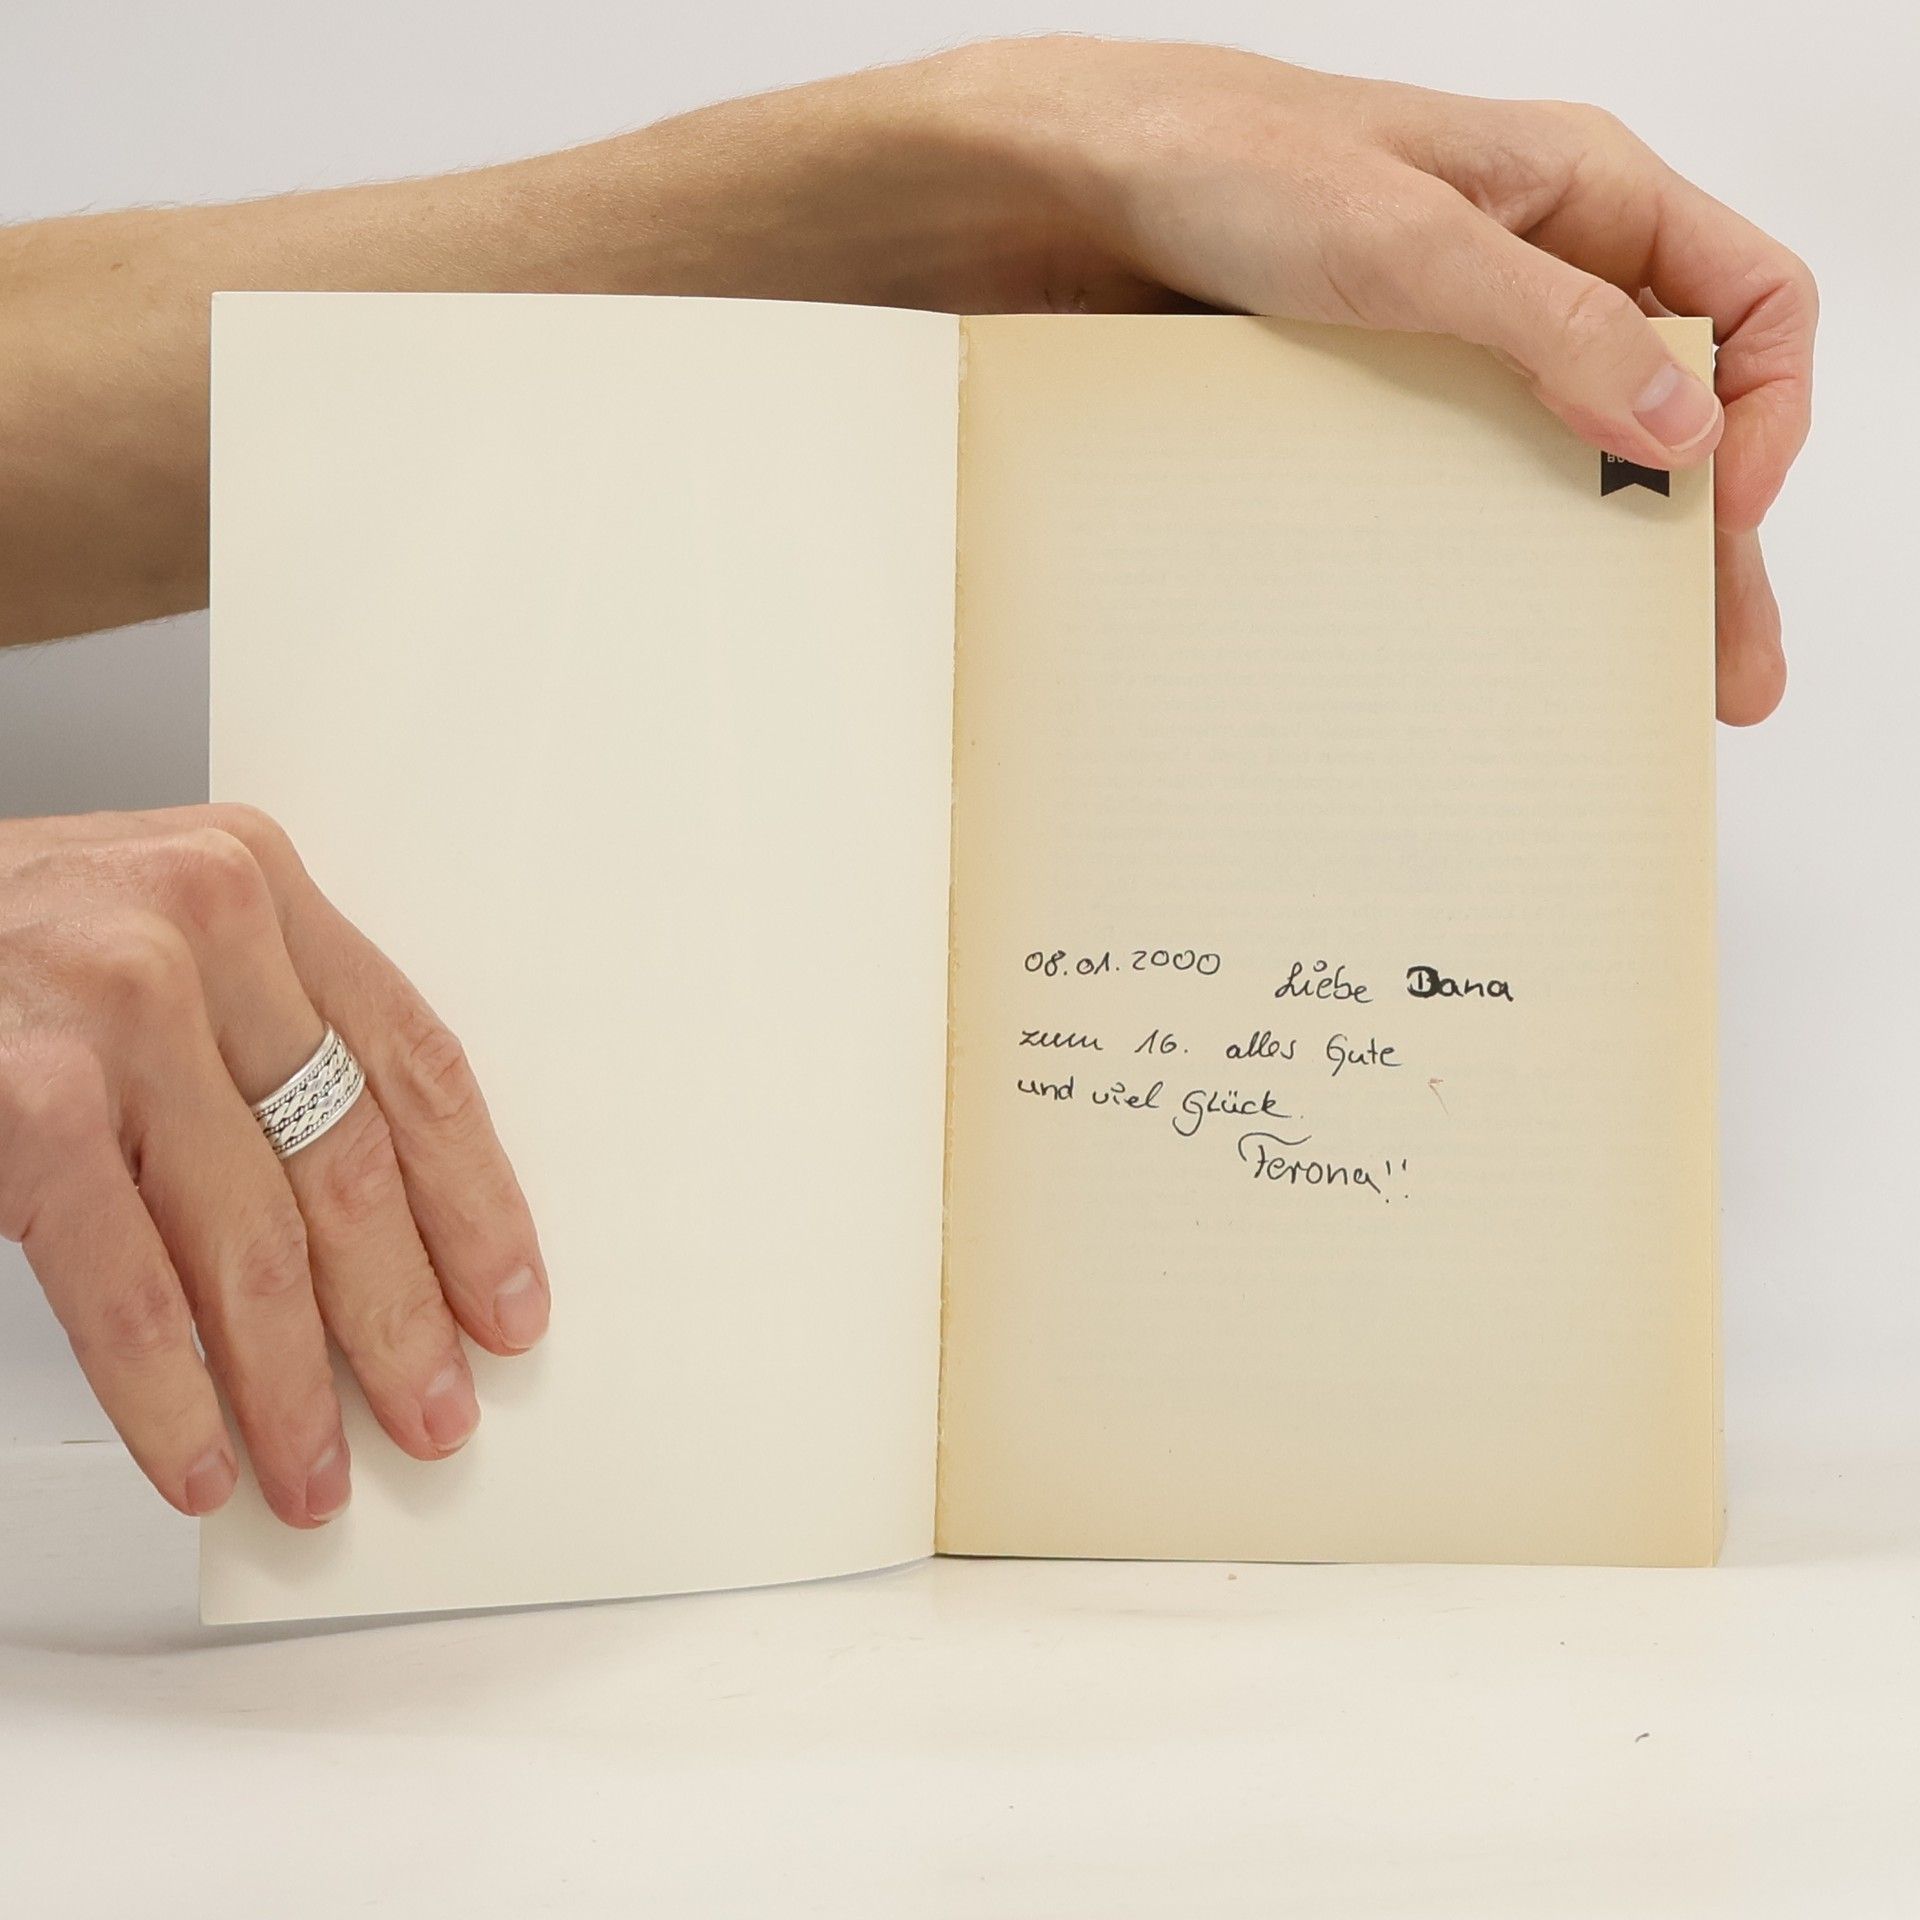 08.01.2000 Liebe Dana
zum 16. alles Gute
und viel Glück.
Ferona!!